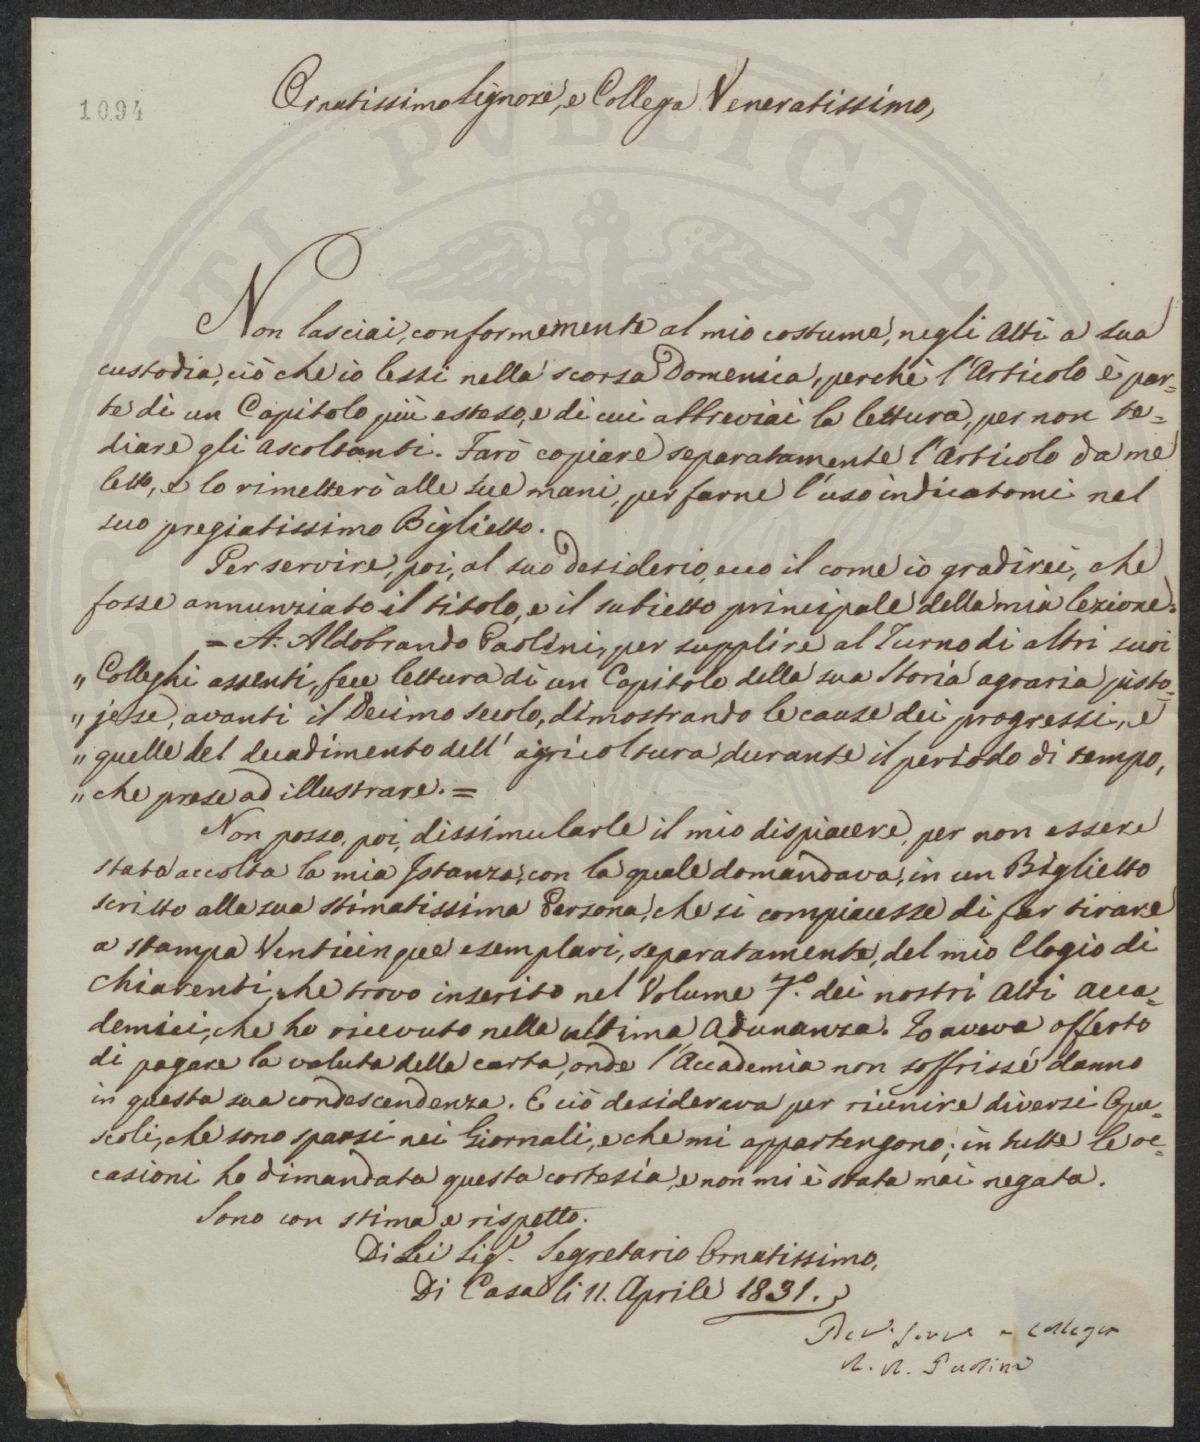 1094
Ornatissimo Signore, e Collega Veneratissimo,
Non lasciai, conformemente al mio costume, negli Atti a sua
custodia, ciò che iò lessi nella scorsa Domenica, perchè l'Articolo è par=
te di un Capitolo più esteso, e di cui abbreviai la lettura, per non te=
diare gli ascoltanti. Farò copiare separatamente l'Articolo da me
letto, e lo rimetterò alle sue mani, per farne l'uso indicatomi nel
suo pregiatissimo Biglietto.
Per servire, poi, al suo desiderio, ecco il come iò gradirei, che
fosse annunziato il titolo, e il subietto principale della mia lezione.
= A. Aldobrando Paolini, per supplire al Turno di altri suoi
„ Colleghi assenti, fece lettura di un Capitolo della sua Storia agraria pisto=
„ jese, avanti il Decimo secolo, dimostrando le cause dei progressi, e
„ quelle del decadimento dell'agricoltura, durante il periodo di tempo,
„ che prese ad illustrare. =
Non posso, poi, dissimularle il mio dispiacere, per non essere
stata accolta la mia Istanza, con la quale domandava, in un Biglietto
scritto alla sua stimatissima Persona, che si compiacesse di far tirare
a stampa Venticinque esemplari, separatamente, del mio Elogio di
Chiarenti, che trovo inserito nel Volume 7.º dei nostri Atti acca=
demici, che ho ricevuto nella ultima Adunanza. Io aveva offerto
di pagare la valuta della carta, onde l'Accademia non soffrisse danno
in questa sua condescendenza. E ciò desiderava per riunire diversi Opu=
scoli, che sono sparsi nei Giornali, e che mi appartengono; in tutte le oc=
casioni ho dimandata questa cortesia, e non mi è stata mai negata.
Sono con stima e rispetto.
Di Lei Sig.r Segretario Ornatissimo,
Di Casa li 11. Aprile 1831.
Dev. Serv. e Collega
A. A. Paolini
PUBLICAE